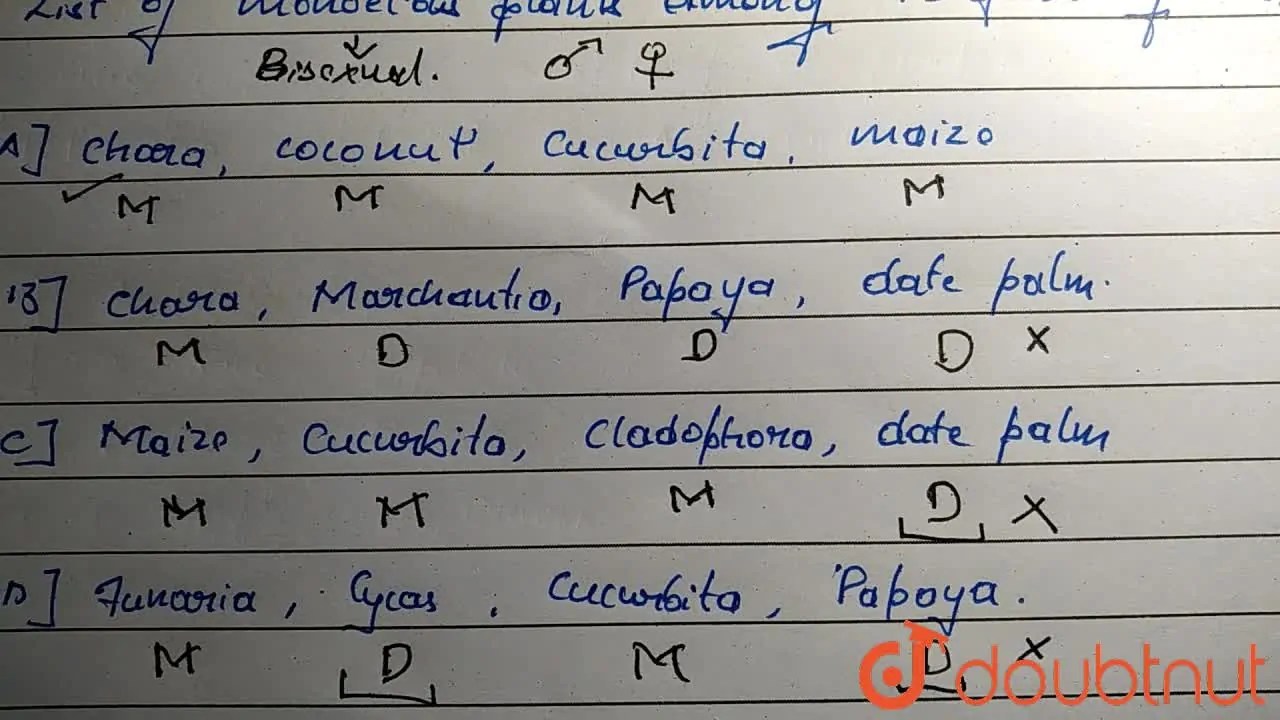 List of monoecious plants among
Bisexual. ♂ ♀
A] Chara, coconut, Cucurbita, maize
✓ M M M M
B] Chara, Marchantia, Papaya, date palm.
M D D D X
C] Maize, Cucurbita, Cladophora, date palm
M M M D X
D] Funaria, Cycas, Cucurbita, Papaya.
M D M D X
doubtnut